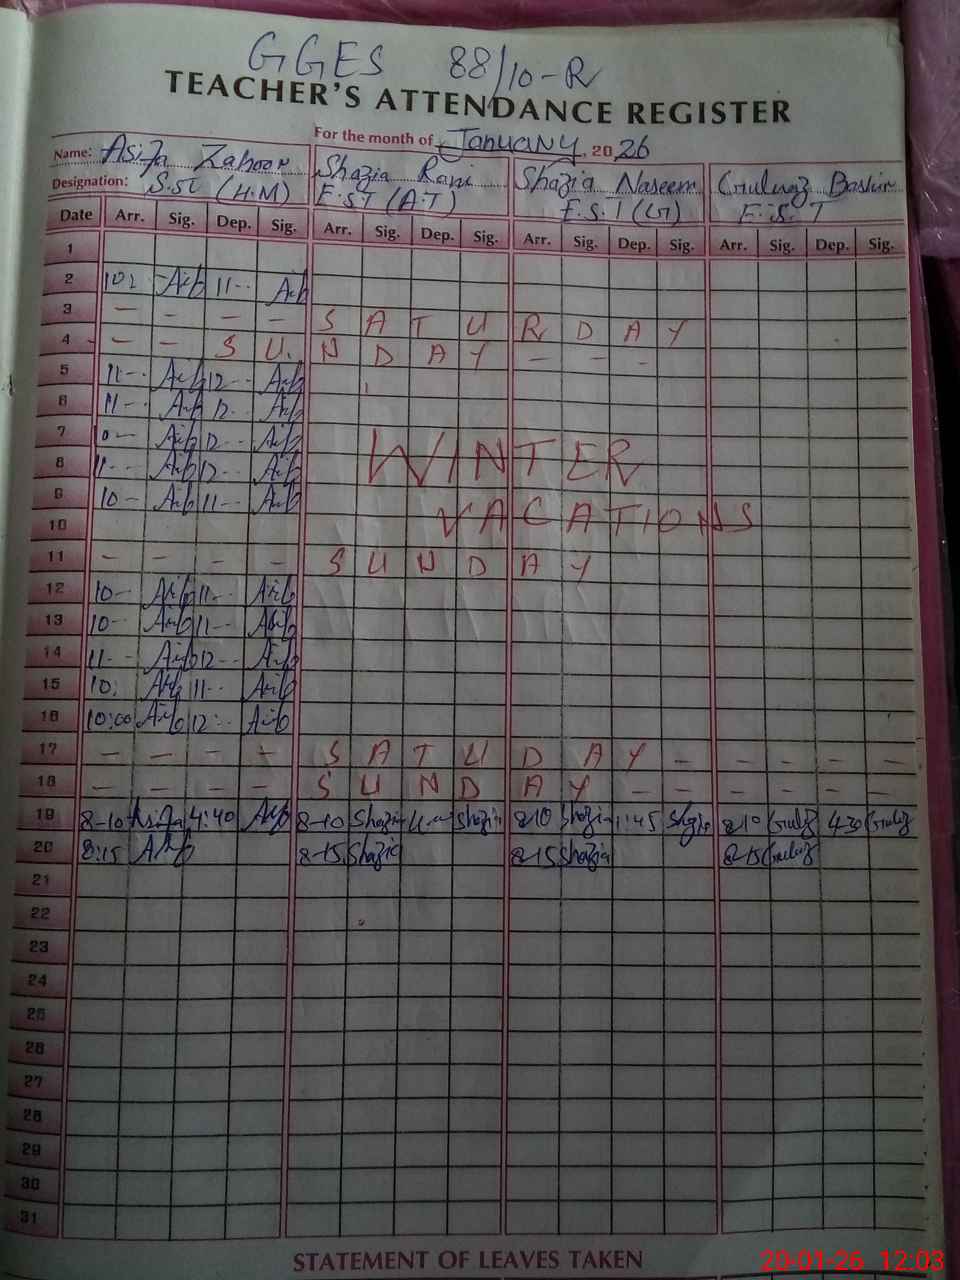 GGES 88/10-R
TEACHER'S ATTENDANCE REGISTER
For the month of January, 2026
Name: Asifa Zahoor Shazia Rani Shazia Naseem Gulnaz Bashir
Designation: S.ST (H.M) E.S.T (A.T) E.S.T (G) E.S.T
Date Arr. Sig. Dep. Sig. Arr. Sig. Dep. Sig. Arr. Sig. Dep. Sig. Arr. Sig. Dep. Sig.
1
2 11--
3 - - - - S A T U R D A Y
4 - - S U. N D A Y - - -
5 11-- 12--
6 11-- 12--
7 12--
8 11-- 12--
WINTER
9 10- 11--
10 VACATIONS
11 - - - - S U N D A Y
12 10- 11--
13 10-- 11--
14 11-- 12--
15 10: 11--
16 10:00 12:--
17 - - - - S A T U D A Y - - - - -
18 - - - - S U N D A Y - - - - - -
19 8-10 Asifa 4:40 8-10 Shazia Shazia 8-10 Shazia 1:45 8-10 Gulnaz 4-30 Gulnaz
20 8:15 8-15 Shazia 8-15 Shazia 8-15 Gulnaz
21
22
23
24
25
26
27
28
29
30
31
STATEMENT OF LEAVES TAKEN
20-01-26 12:03